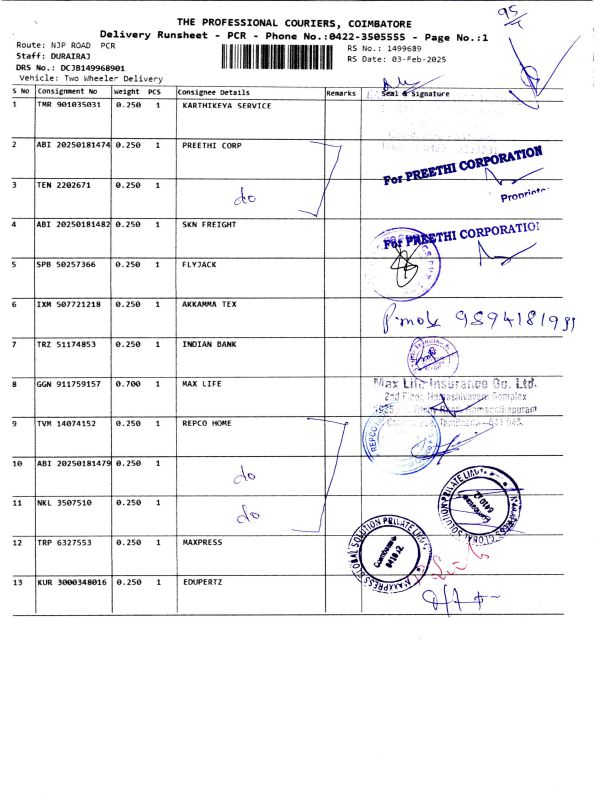 THE PROFESSIONAL COURIERS, COIMBATORE
Delivery Runsheet - PCR - Phone No.:0422-3505555 - Page No.:1
Route: NJP ROAD PCR
RS No.: 1499689
Staff: DURAIRAJ
RS Date: 03-Feb-2025
DRS No.: DCJB149968901
Vehicle: Two Wheeler Delivery
S No Consignment No Weight PCS Consignee Details Remarks Seal & Signature
1 TMR 901035031 0.250 1 KARTHIKEYA SERVICE
2 ABI 20250181474 0.250 1 PREETHI CORP
For PREETHI CORPORATION
3 TEN 2202671 0.250 1 do
Proprietor
4 ABI 20250181482 0.250 1 SKN FREIGHT
For PREETHI CORPORATION
5 SPB 50257366 0.250 1 FLYJACK
6 IXM 507721218 0.250 1 AKKAMMA TEX
7 TRZ 51174853 0.250 1 INDIAN BANK
8 GGN 911759157 0.700 1 MAX LIFE
Max Life Insurance Co. Ltd.
2nd Floor, Namashivayam Complex
9 TVM 14074152 0.250 1 REPCO HOME
10 ABI 20250181479 0.250 1 do
11 NKL 3507510 0.250 1 do
MAXPRESS GLOBAL SOLUTION PRIVATE LIMITED
Coimbatore
12 TRP 6327553 0.250 1 MAXPRESS
MAXPRESS GLOBAL SOLUTION PRIVATE LIMITED
Coimbatore
13 KUR 3000348016 0.250 1 EDUPERTZ